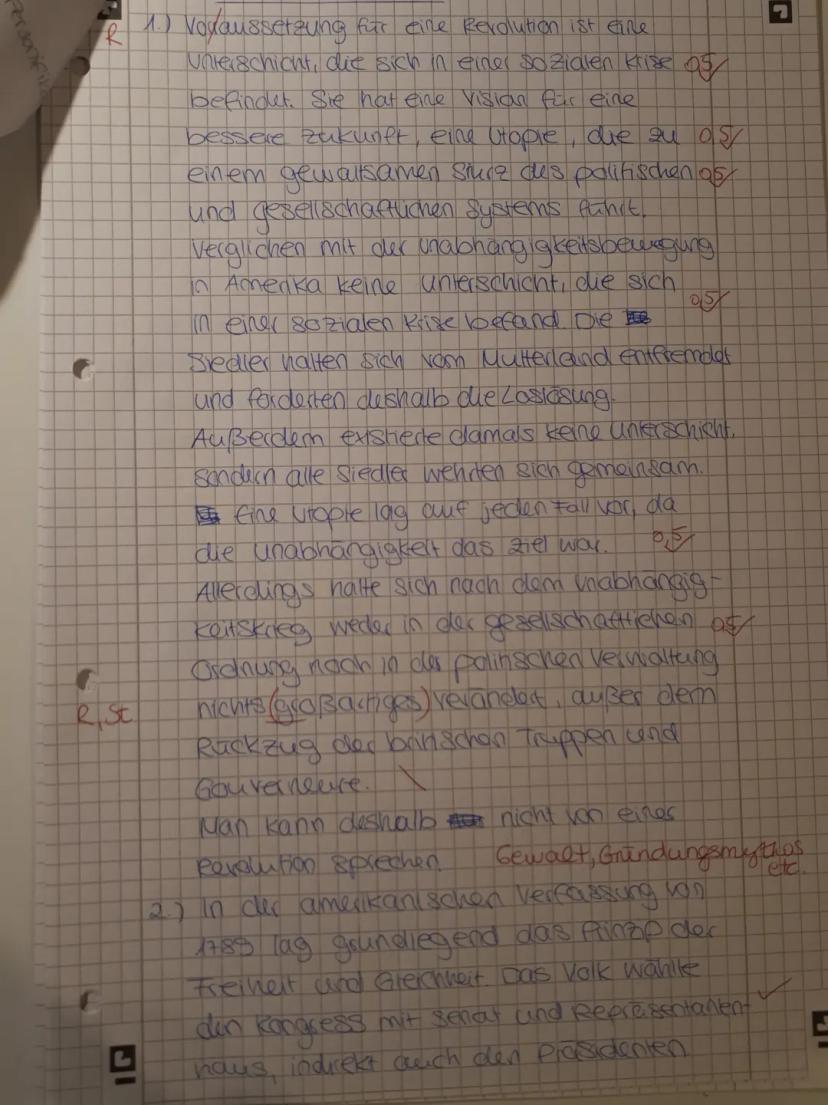 R 1.) Vorraussetzung für eine Revolution ist eine
Unterschicht, die sich in einer sozialen Krise 0,5
befindet. Sie hat eine Vision für eine
bessere Zukunft, eine Utopie, die zu 0,5
einem gewaltsamen Sturz des politischen 0,5
und gesellschaftlichen Systems führt.
Verglichen mit der Unabhängigkeitsbewegung
in Amerika keine Unterschicht, die sich
in einer sozialen Krise befand. Die 0,5
Siedler hatten sich vom Mutterland entfremdet
und forderten deshalb die Loslösung.
Außerdem existierte damals keine Unterschicht,
sondern alle Siedler wehrten sich gemeinsam.
Eine Utopie lag auf jeden Fall vor, da
die Unabhängigkeit das Ziel war. 0,5
Allerdings hatte sich nach dem Unabhängig-
keitskrieg weder in der gesellschaftlichen 0,5
Ordnung noch in der politischen Verwaltung
R, St nichts (großartiges) verändert, außer dem
Rückzug der britischen Truppen und
Gouverneure.
Man kann deshalb nicht von einer
Revolution sprechen. Gewalt, Gründungsmythos
etc.
2.) In der amerikanischen Verfassung von
1789 lag grundlegend das Prinzip der
Freiheit und Gleichheit. Das Volk wählte
den Kongress mit Senat und Repräsentanten-
haus, indirekt auch den Präsidenten